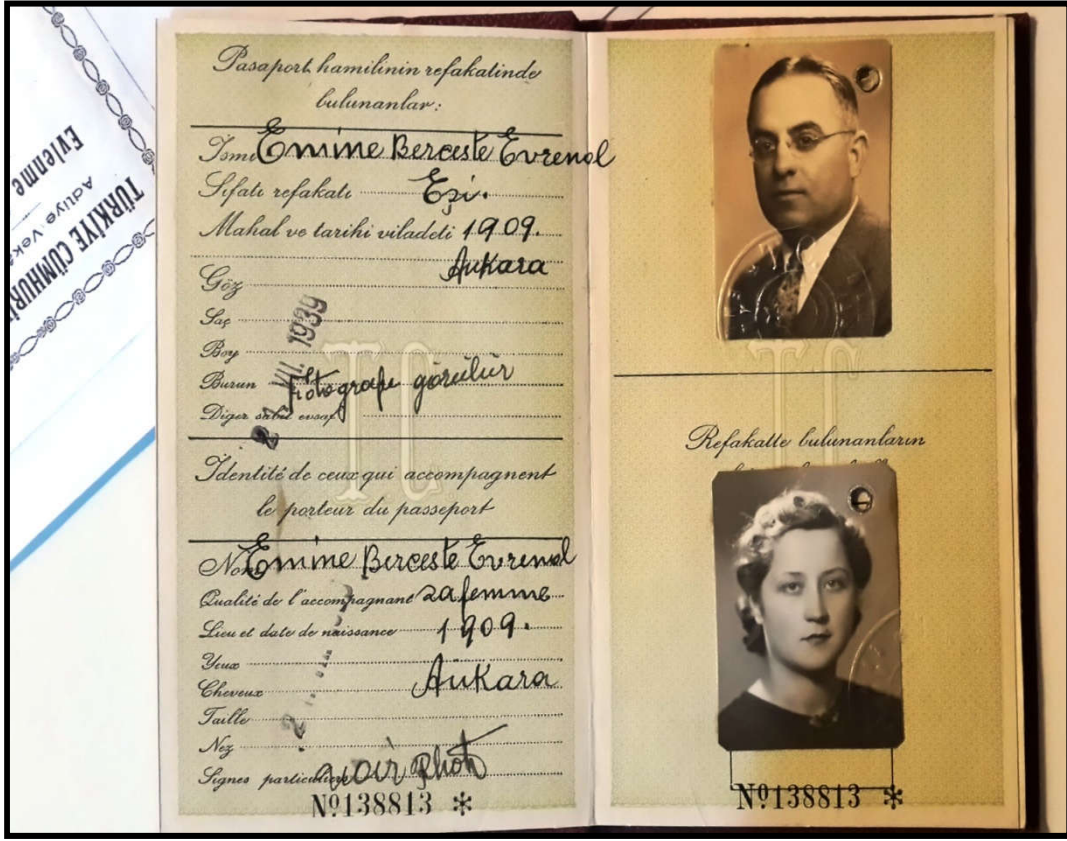 Pasaport hamilinin refakatinde
bulunanlar:
İsmi Emine Berceste Evrenol
Sıfatı refakatı Eşi.
Mahal ve tarihi viladeti 1909.
Ankara
Göz
Saç
Boy
Burun Fotografı görülür
Diğer sabit evsaf
2 VII. 1939
Identité de ceux qui accompagnent
le porteur du passeport
Nom Emine Berceste Evrenol
Qualité de l'accompagnant sa femme
Lieu et date de naissance 1909.
Yeux
Cheveux Ankara
Taille
Nez
Signes particuliers voir Phot
Nº138813 *
TC
TC
Refakatte bulunanların
Nº138813 *
Evlenme
Adliye Vek
TÜRKİYE CÜMHURİ